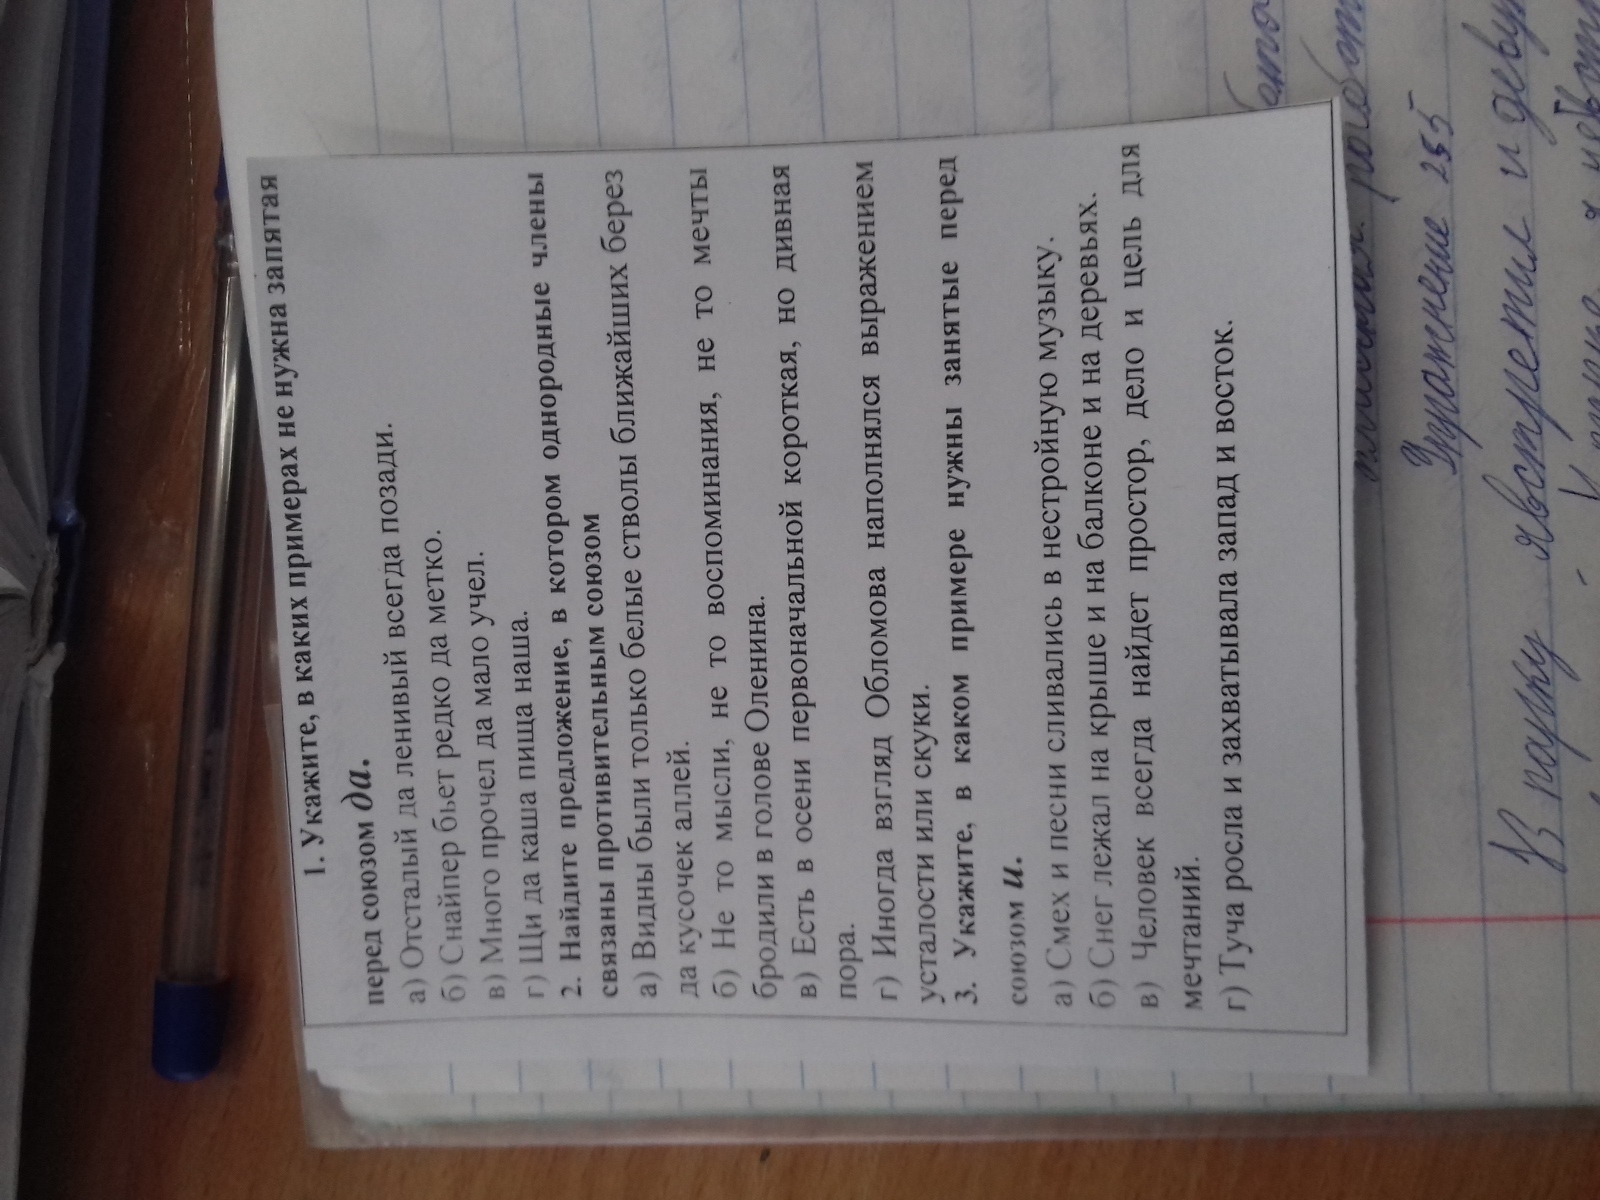 1. Укажите, в каких примерах не нужна запятая
перед союзом да.
а) Отсталый да ленивый всегда позади.
б) Снайпер бьет редко да метко.
в) Много прочел да мало учел.
г) Щи да каша пища наша.
2. Найдите предложение, в котором однородные члены
связаны противительным союзом
а) Видны были только белые стволы ближайших берез
да кусочек аллей.
б) Не то мысли, не то воспоминания, не то мечты
бродили в голове Оленина.
в) Есть в осени первоначальной короткая, но дивная
пора.
г) Иногда взгляд Обломова наполнялся выражением
усталости или скуки.
3. Укажите, в каком примере нужны занятые перед
союзом и.
а) Смех и песни сливались в нестройную музыку.
б) Снег лежал на крыше и на балконе и на деревьях.
в) Человек всегда найдет простор, дело и цель для
мечтаний.
г) Туча росла и захватывала запад и восток.
Упражнение 255
В полку явстретил и